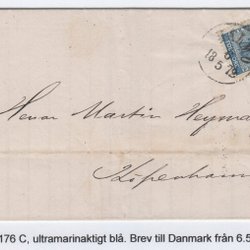 18 5 79
Herrar Martin Heyma
Köpenhamn
176 C, ultramarinaktigt blå. Brev till Danmark från 6.5